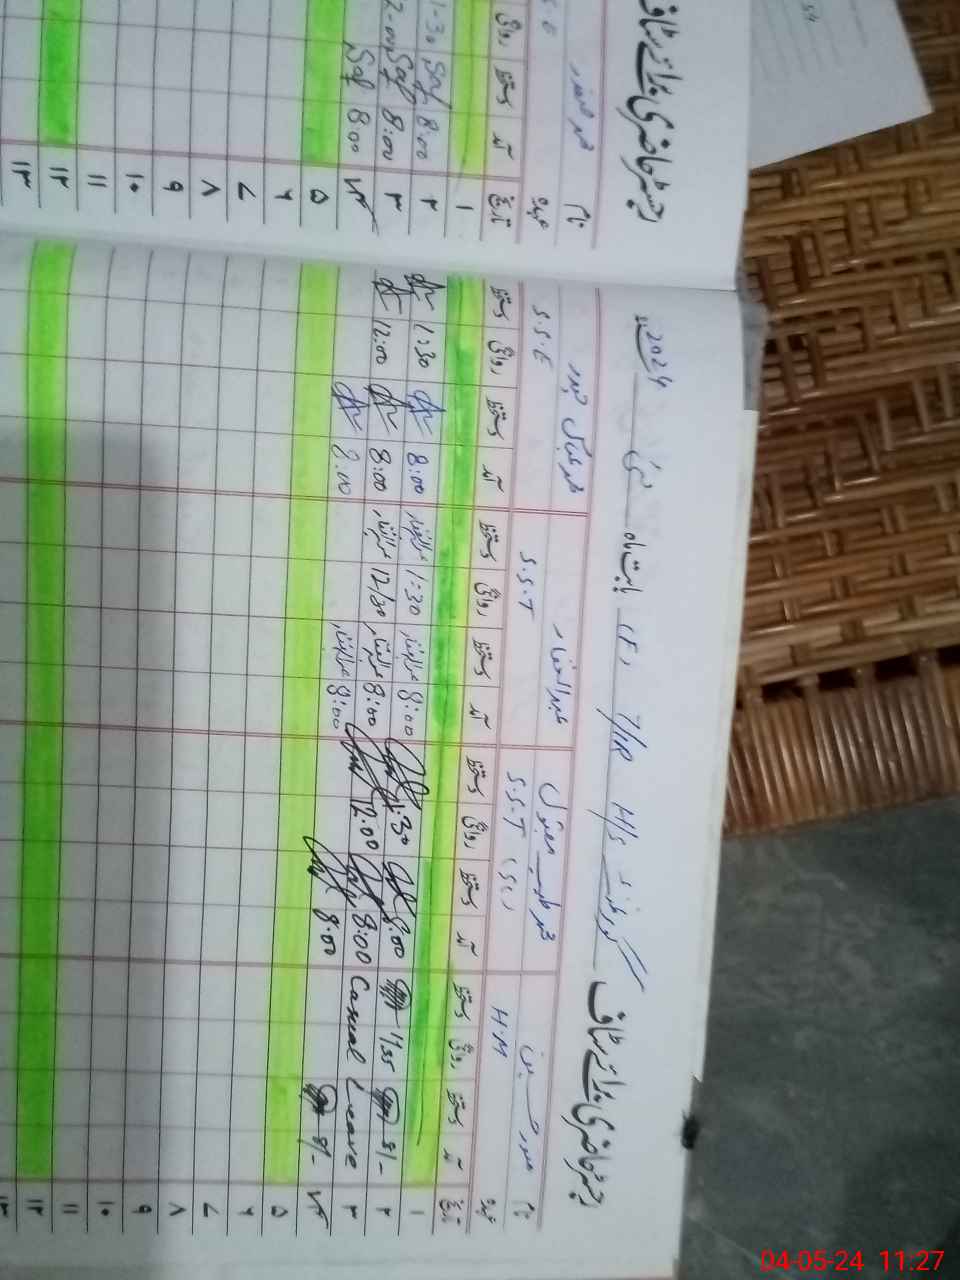 رجسٹر حاضری برائے سٹاف گورنمنٹ H/S 7/1R بابت ماہ مئی 2024ء
نام منور حسین محمد طیب مقبول عبدالغفار محمد عباس حیدر
عہدہ H.M S.S.T (Sc) S.S.T S.S.E
تاریخ آمد دستخط روانگی دستخط آمد دستخط روانگی دستخط آمد دستخط روانگی دستخط آمد دستخط روانگی دستخط
۱
۲ 8/- 11:55 8:00 1:30 8:00 عبدالغفار 1:30 عبدالغفار 8:00 1:30
۳ Casual Leave 8:00 12:00 8:00 عبدالغفار 12/30 عبدالغفار 8:00 12:00
۴ 8/- 8:00 8:00 عبدالغفار 8:00
۵
۶
۷
۸
۹
۱۰
۱۱
۱۲
۱۳
رجسٹر حاضری برائے سٹاف
نام محمد صفدر
عہدہ S.E
تاریخ آمد دستخط روانگی
۱
۲ 8:00 Saf 1-30
۳ 8:00 Saf 2-00
۴ 8:00 Saf
۵
۶
۷
۸
۹
۱۰
۱۱
۱۲
۱۳
04-05-24 11:27